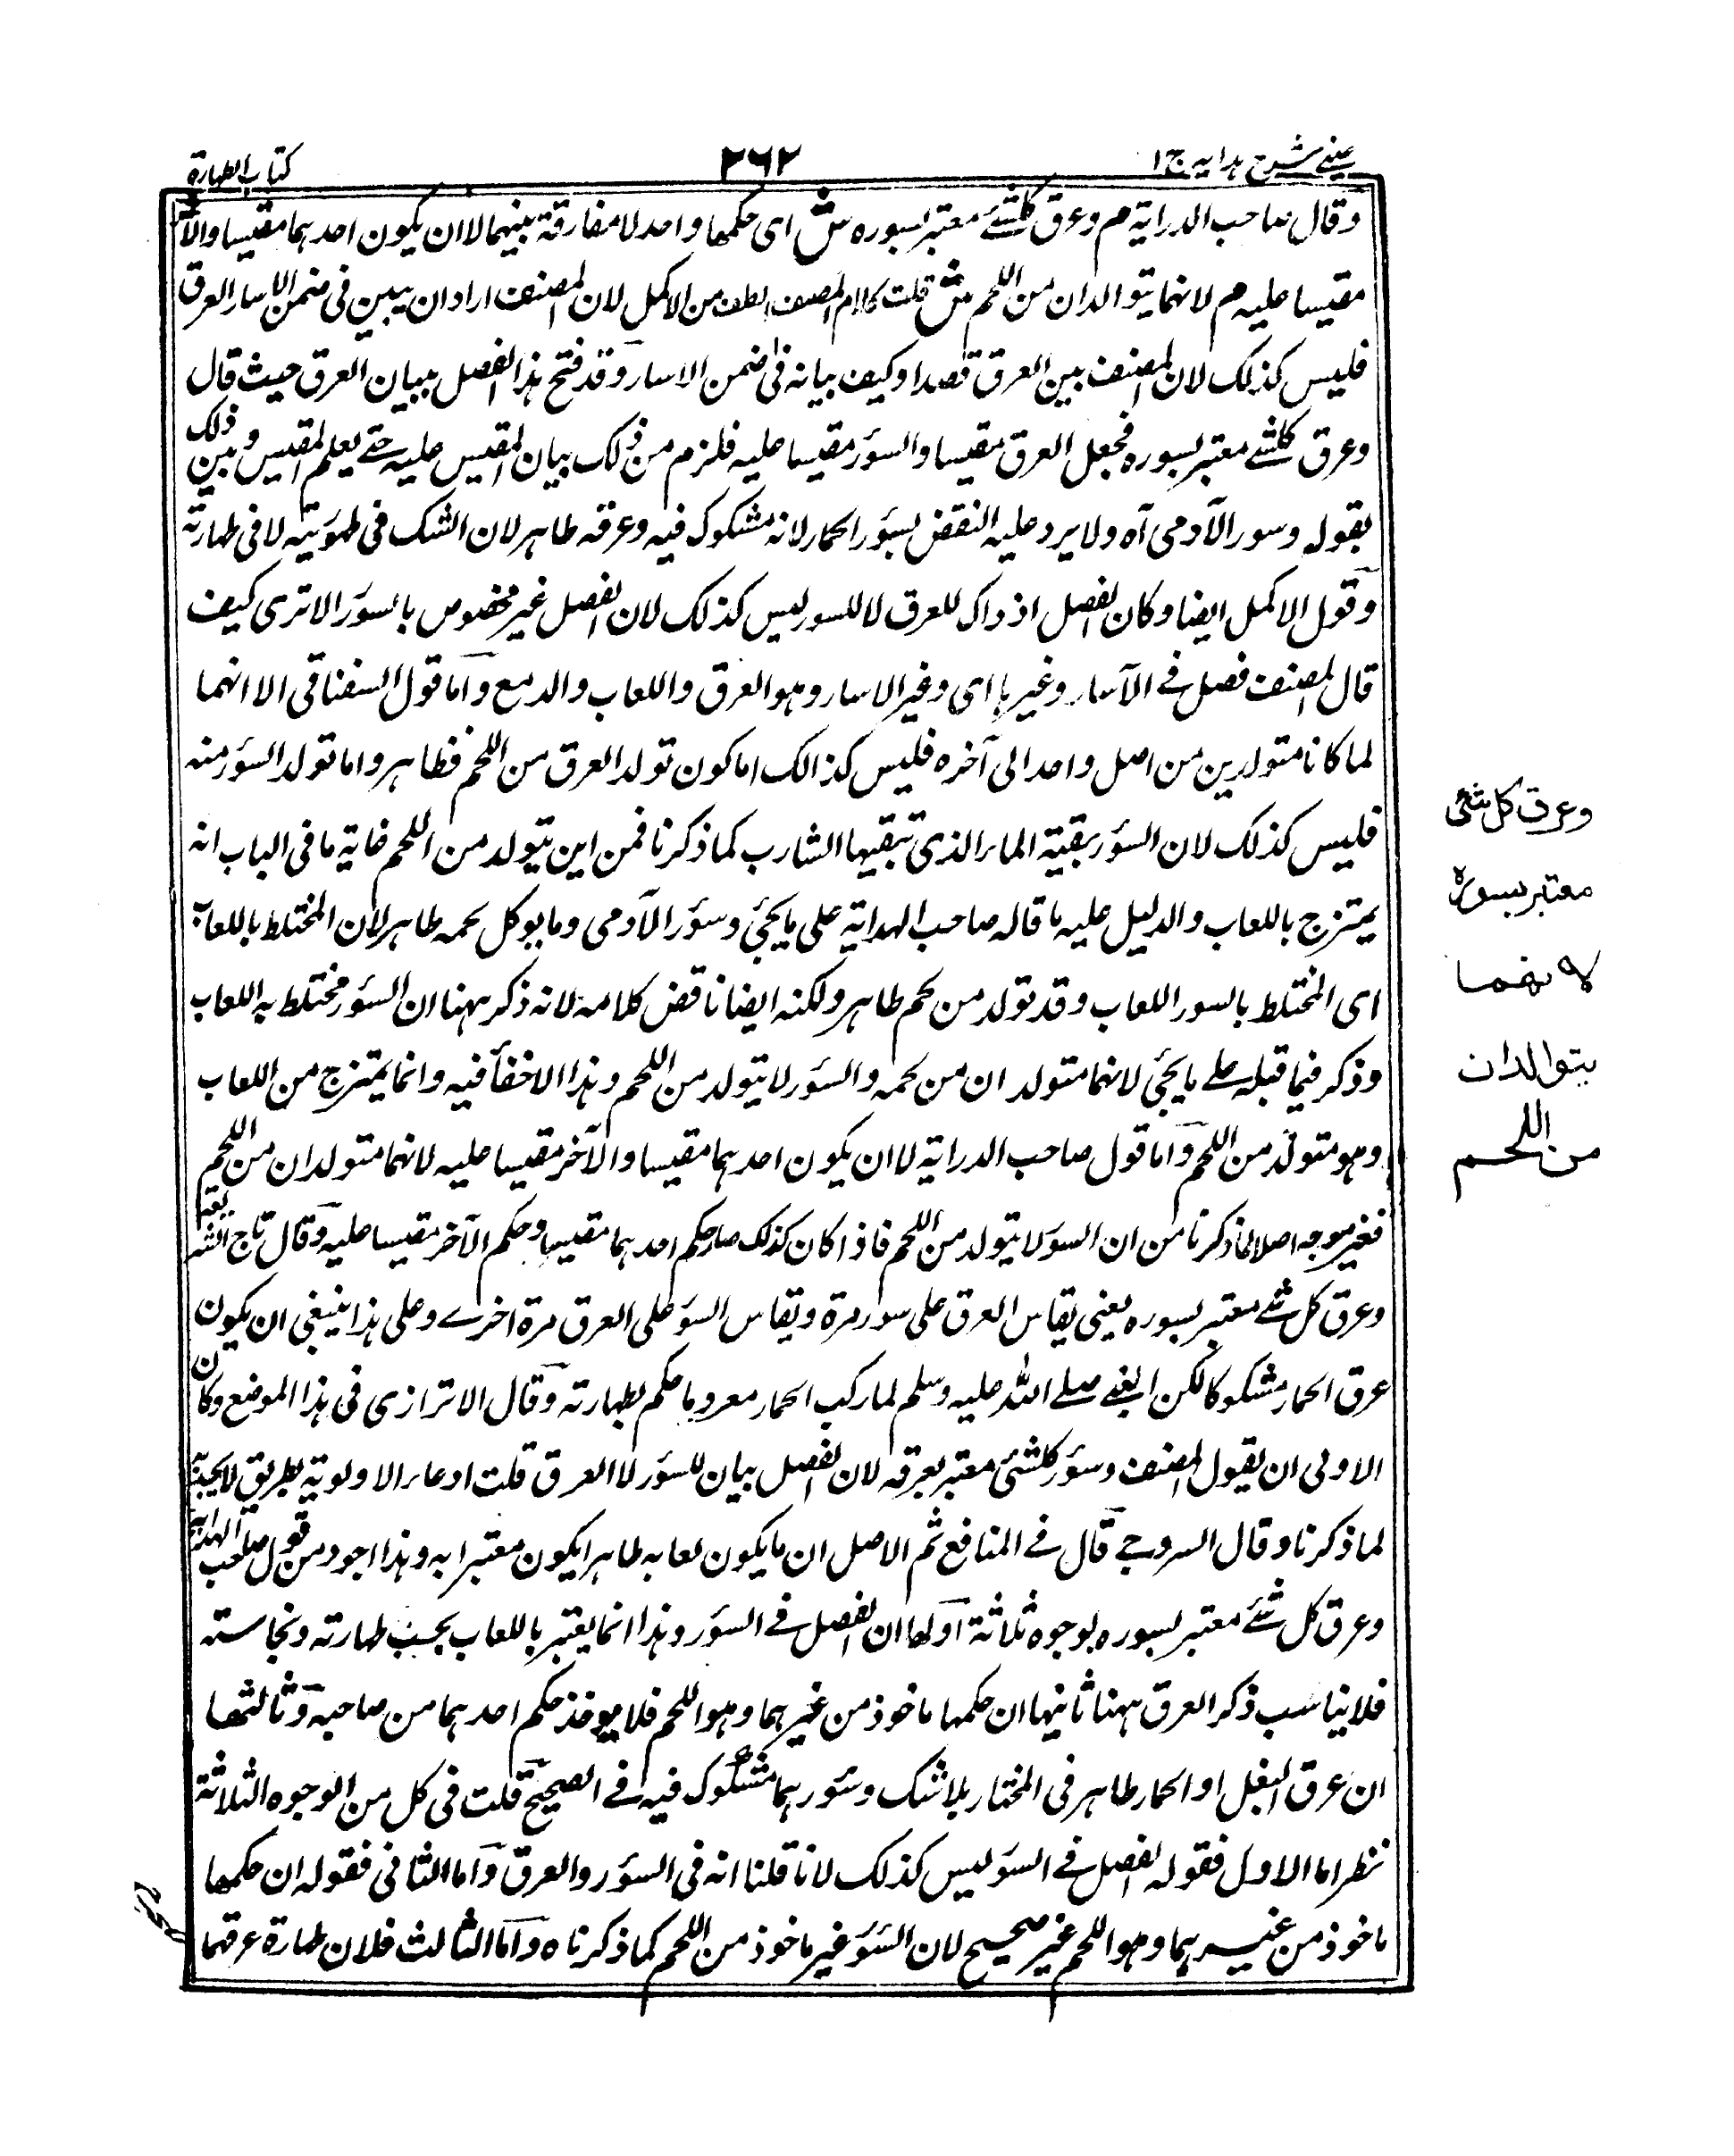 عينے شرح هدايه ج ١
٢٦٢
كتاب الطهارة
وقال صاحب الدراية م وعرق كلشئے معتبر بسوره ش اى حكمها واحد لا مفارقة بينهما لا ان يكون احدهما مقيسا والآخر
مقيسا عليه م لانهما يتوالدان من اللحم ش قلت كلام المصنف الطف من الاكمل لان المصنف اراد ان يبين فى ضمن الاسار العرق
فليس كذلك لان المصنف بين العرق قصدا وكيف بيانه فى ضمن الاسار وقد فتح هذا الفصل ببيان العرق حيث قال
وعرق كلشے معتبر بسوره فجعل العرق مقيسا والسؤر مقيسا عليه فلزم من ذلك بيان المقيس عليه حتے يعلم المقيس وبين ذلك
بقوله وسور الآدمى آه ولا يرد عليه النقض بسؤر الحمار لانه مشكوك فيه وعرقه طاهر لان الشك فى طهوريته لا فى طهارته
وقول الاكمل ايضا وكان الفصل اذ ذاك للعرق لا للسور ليس كذلك لان الفصل غير مخصوص بالسؤر الا ترى كيف
قال المصنف فصل فے الآسار وغيرها اى وغير الاسار وهو العرق واللعاب والدمع واما قول السغناقى الا انهما
لما كانا متولدين من اصل واحد الى آخره فليس كذالك اما كون تولد العرق من اللحم فظاهر واما تولد السؤر منه
فليس كذلك لان السؤر بقية الماء الذى تبقيها الشارب كما ذكرنا فمن اين يتولد من اللحم غاية ما فى الباب انه
يمتزج باللعاب والدليل عليه ما قاله صاحب الهداية على ما يجئ وسؤر الآدمى وما يوكل لحمه طاهر لان المختلط به اللعاب
اى المختلط بالسور اللعاب وقد تولد من لحم طاهر ولكنه ايضا ناقض كلامه لانه ذكر ههنا ان السؤر مختلط به اللعاب
وذكر فيما قبله علے ما يجئ لانهما متولد ان من لحمه والسؤر لا يتولد من اللحم وهذا الاخفأ فيه وانما يمتزج من اللعاب
وهو متولد من اللحم واما قول صاحب الدراية لا ان يكون احدهما مقيسا والآخر مقيسا عليه لانهما متولدان من اللحم
فغير موجه اصلا لما ذكرنا من ان السؤر لا يتولد من اللحم فاذا كان كذلك صار حكم احدهما مقيسا وحكم الآخر مقيسا عليه وقال تاج الشريعة
وعرق كل شے معتبر بسوره يعنى يقاس العرق على سور مرة ويقاس السؤ على العرق مرة اخرے وعلى هذا ينبغى ان يكون
عرق الحمار مشكوكا لكن النبے صلے الله عليه وسلم لما ركب الحمار معروريا حكم بطهارته وقال الاترازى فى هذا الموضع وكان
الاولى ان يقول المصنف وسؤر كلشئ معتبر بعرقه لان الفصل بيان للسؤر لا العرق قلت ادعاء الاولوية بطريق
لما ذكرنا وقال السروجے قال فے المنافع ثم الاصل ان ما يكون لعابه طاهرا يكون معتبرا به وهذا اجود من قول صاحب الهداية
وعرق كل شئے معتبر بسوره بوجوه ثلاثة اولها ان الفصل فے السؤر وهذا انما يعتبر باللعاب بحسب طهارته ونجاسته
فلا يناسب ذكر العرق ههنا ثانيها ان حكمها ماخوذ من غيرهما وهو اللحم فلا يوخذ حكم احدهما من صاحبه وثالثها
ان عرق البغل او الحمار طاهر فى المختار بلا شك وسؤرهما مشكوك فيه فے الصحيح قلت فى كل من الوجوه الثلاثة
نظر اما الاول فقوله الفصل فے السؤ ليس كذلك لانا قلنا انه فى السؤر والعرق واما الثانى فقوله ان حكمها
ماخوذ من غيرهما وهو اللحم غير صحيح لان السؤر غير ماخوذ من اللحم كما ذكرناه واما الثالث فلان طهارة عرقهما
وعرق كل شئ
معتبر بسوره
لانهما
يتوالدان
من اللحم